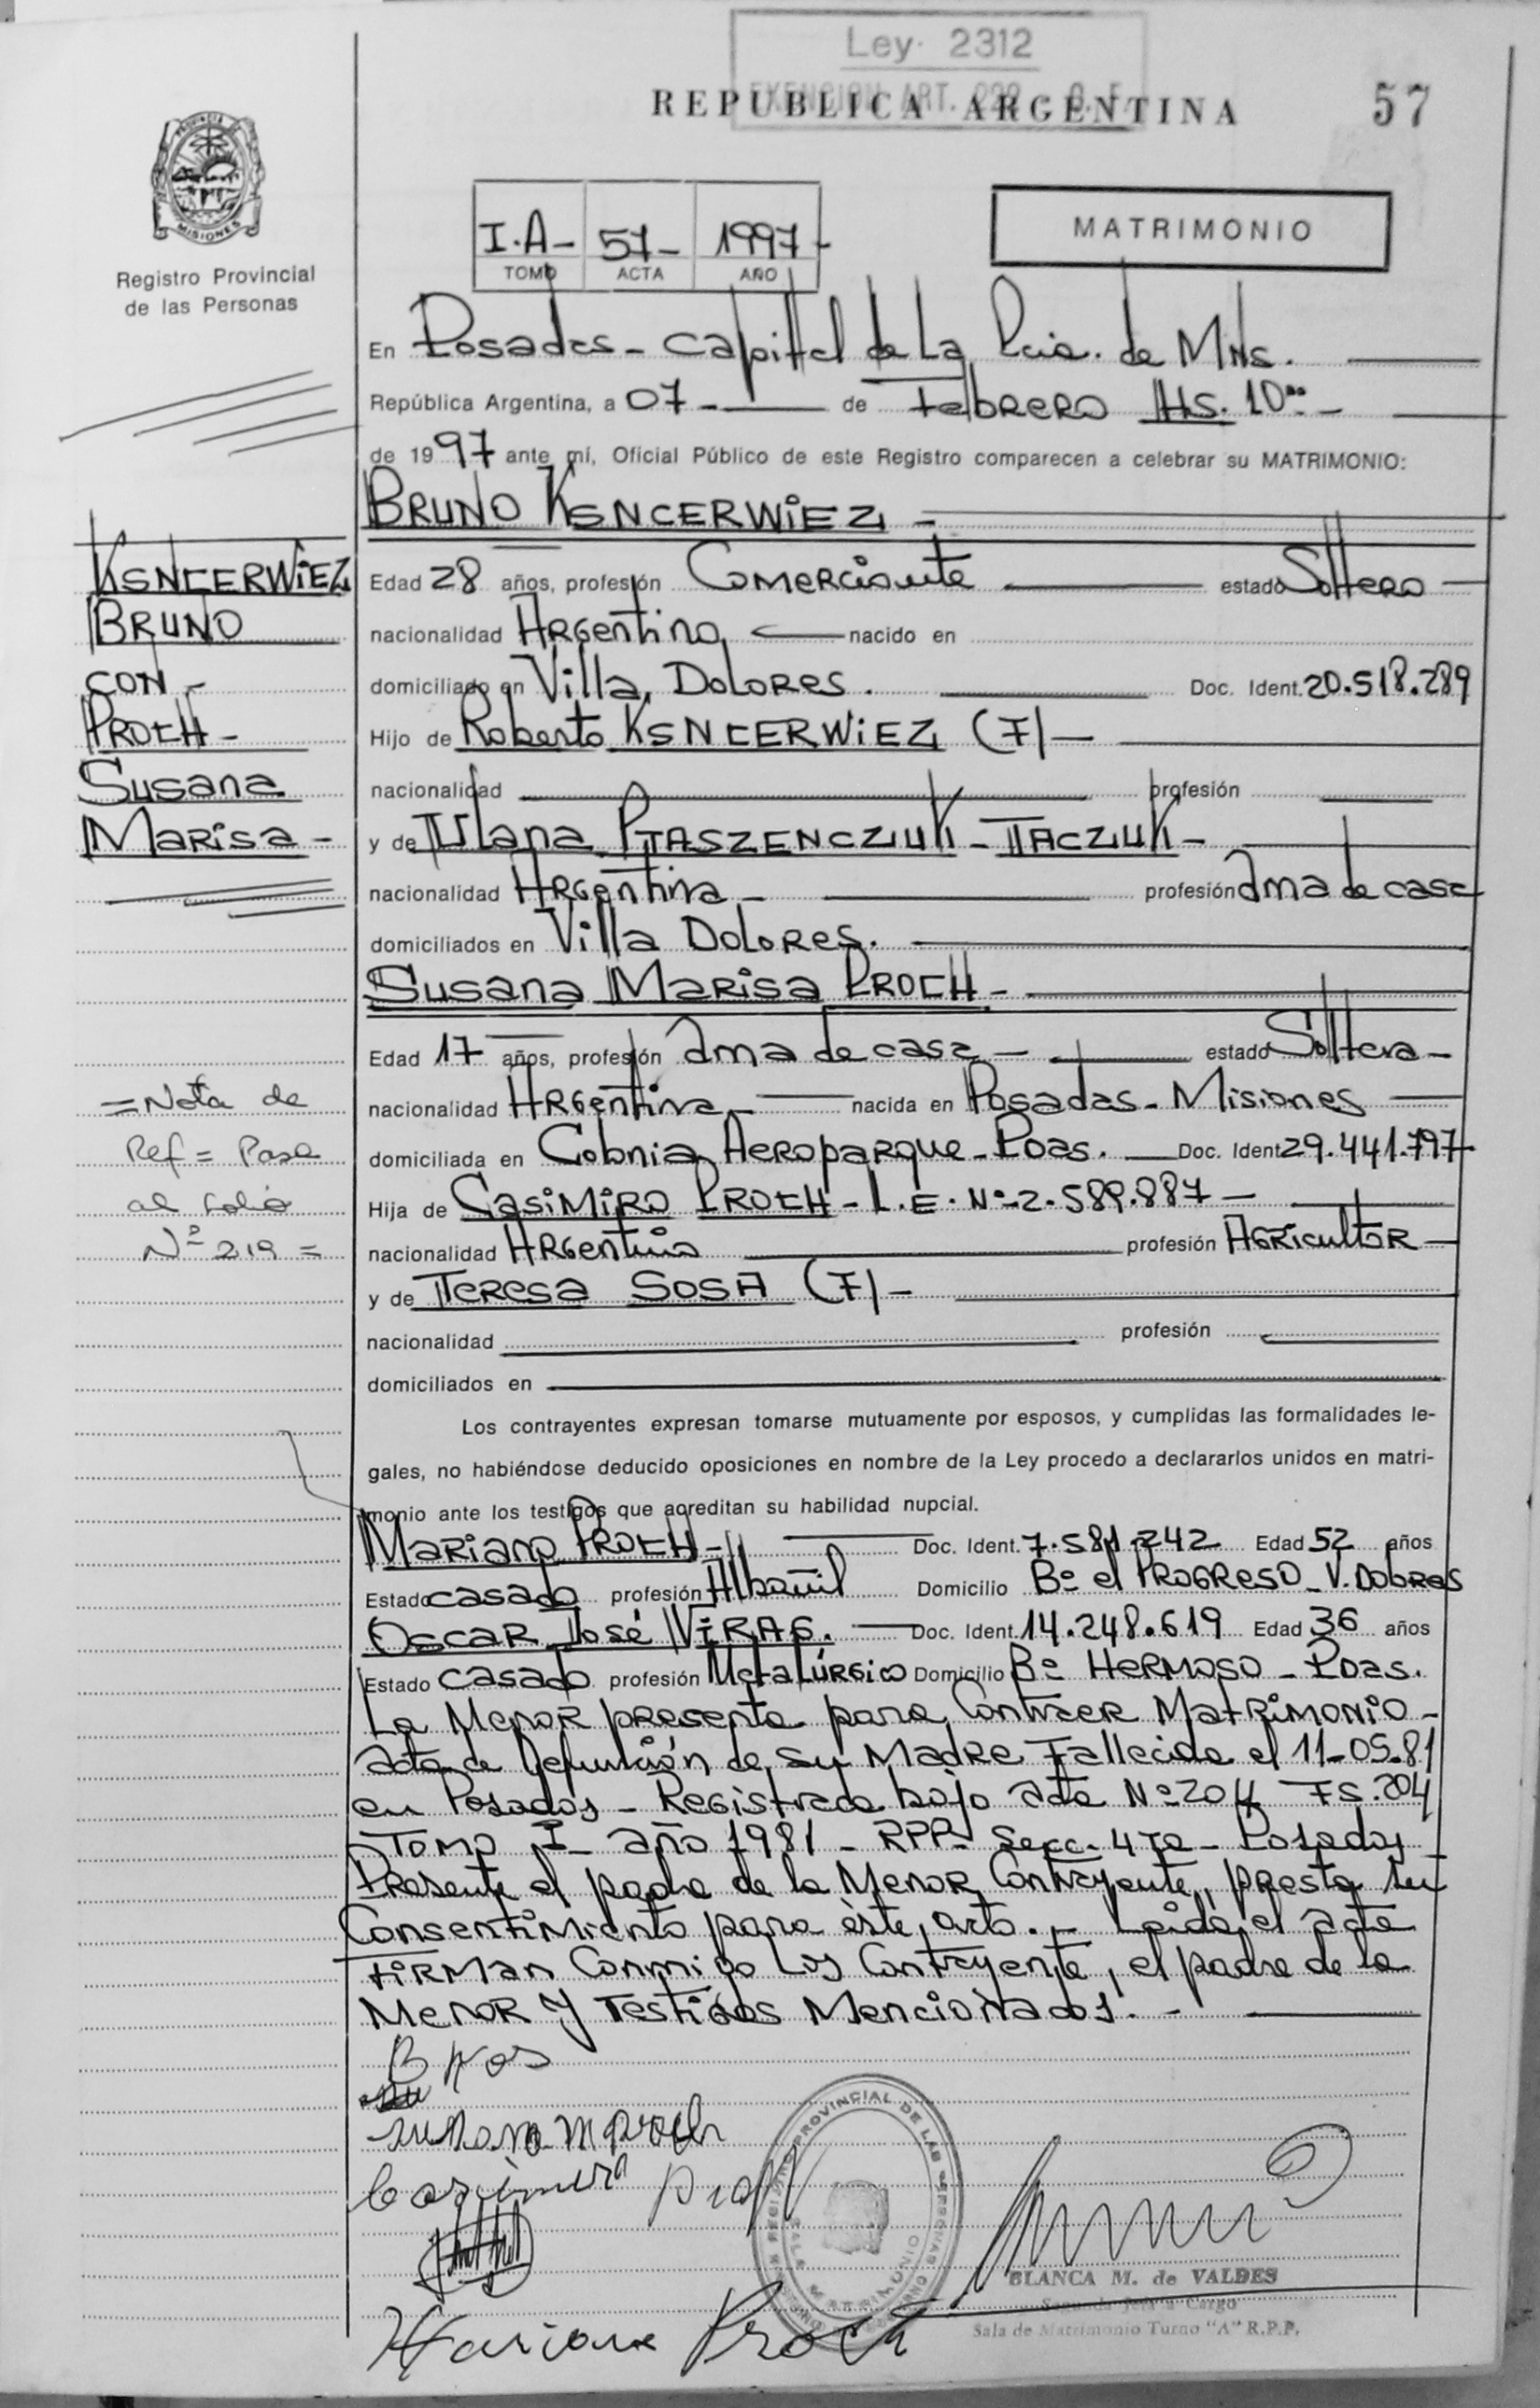 Ley 2312
EXENCION ART. 222
REPUBLICA ARGENTINA
57
MISIONES
Registro Provincial
de las Personas
I.A- 57- 1997-
TOMO ACTA AÑO
MATRIMONIO
En Posadas - Capital de La Pcia. de Mnes.
República Argentina, a 07- de Febrero Hs. 10⁰⁰-
de 1997 ante mí, Oficial Público de este Registro comparecen a celebrar su MATRIMONIO:
BRUNO KSNCERWIEZ -
KSNCERWIEZ
BRUNO
CON -
PROCH -
Susana
Marisa -
Edad 28 años, profesión Comerciante estado Soltero
nacionalidad Argentina nacido en
domiciliado en Villa Dolores. Doc. Ident. 20.518.289
Hijo de Roberto KSNCERWIEZ (F) -
nacionalidad profesión
y de Ulana PTASZENCZIUK - TACZIUK -
nacionalidad Argentina - profesión Ama de casa
domiciliados en Villa Dolores.
Susana Marisa PROCH -
Edad 17 años, profesión Ama de casa - estado Soltera -
nacionalidad Argentina - nacida en Posadas - Misiones
domiciliada en Colonia Aeroparque - Pdas. Doc. Ident. 29.441.797
Hija de Casimiro PROCH - L.E. Nº 2.589.887 -
nacionalidad Argentino profesión Agricultor
y de Teresa SOSA (F) -
nacionalidad profesión
domiciliados en
= Nota de
Ref = Pase
al folio
Nº 219 =
Los contrayentes expresan tomarse mutuamente por esposos, y cumplidas las formalidades le-
gales, no habiéndose deducido oposiciones en nombre de la Ley procedo a declararlos unidos en matri-
monio ante los testigos que acreditan su habilidad nupcial.
Mariano PROCH - Doc. Ident. 7.581.242 Edad 52 años
Estado casado profesión Albañil Domicilio Bº el Progreso - V. Dolores
Oscar José VIRAG. Doc. Ident. 14.248.619 Edad 36 años
Estado casado profesión Metalúrgico Domicilio Bº Hermoso - Pdas.
La Menor presenta para Contraer Matrimonio -
acta de Defunción de su Madre Fallecida el 11-05-81
en Posadas - Registrada bajo acta Nº 204 Fs. 204
Tomo I - año 1981 - RPP - Secc. 4ta - Posadas
Presente el padre de la Menor Contrayente, presta su
Consentimiento para éste, acto. - Leida el acta
Firman Conmigo Los Contrayente, el padre de la
Menor y Testigos Mencionados. -
Susana M Proch
Casimiro Proch
REGISTRO PROVINCIAL DE LAS PERSONAS
MATRIMONIO
BLANCA M. de VALDES
Segunda Jefa a Cargo
Sala de Matrimonio Turno "A" R.P.P.
Mariano Proch